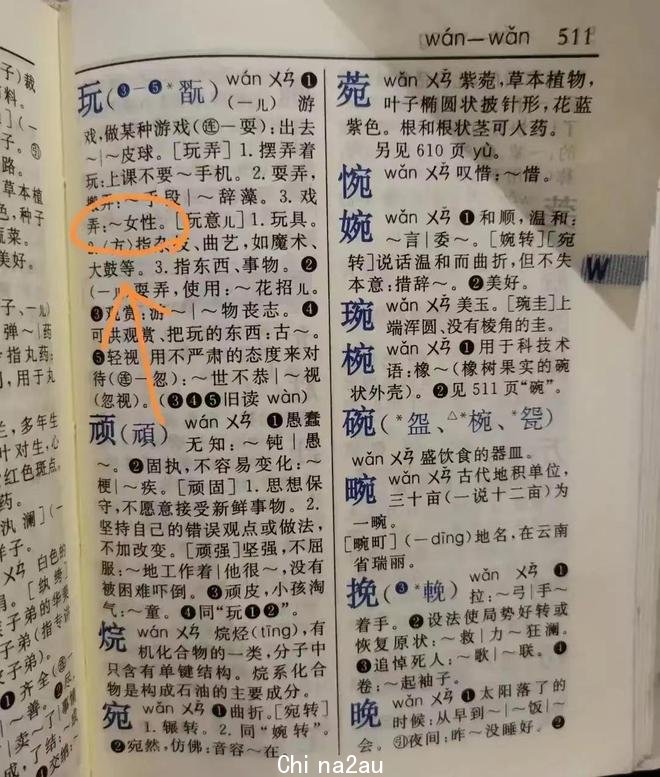 wán—wǎn 511
玩(❸–❺* 翫) wán ㄨㄢˊ ❶
(一儿) 游
戏,做某种游戏(㊣一耍):出去
~|~皮球。[玩弄] 1.摆弄着
玩:上课不要~手机。2.耍弄,
搬弄:~手段|~辞藻。3.戏
弄:~女性。[玩意儿] 1.玩具。
2.(方)指杂技、曲艺,如魔术、
大鼓等。3.指东西、事物。❷
(一儿)耍弄,使用:~花招儿。
❸观赏:游~|~物丧志。❹
可供观赏、把玩的东西:古~。
❺轻视,用不严肃的态度来对
待(㊣一忽):~世不恭|~视
(忽视)。(❸❹❺旧读 wàn)
顽(頑) wán ㄨㄢˊ ❶愚蠢
无知:~钝|愚
~。❷固执,不容易变化:~
梗|~疾。[顽固] 1.思想保
守,不愿意接受新鲜事物。2.
坚持自己的错误观点或做法,
不加改变。[顽强]坚强,不屈
服:~地工作着|他很~,没有
被困难吓倒。❸顽皮,小孩淘
气:~童。❹同“玩❶❷”。
烷 wán ㄨㄢˊ 烷烃(tīng),有
机化合物的一类,分子中
只含有单键结构。烷系化合
物是构成石油的主要成分。
宛 wǎn ㄨㄢˇ ❶曲折。[宛转]
1.辗转。2.同“婉转”。
❷宛然,仿佛:音容~在
菀 wǎn ㄨㄢˇ 紫菀,草本植物,
叶子椭圆状披针形,花蓝
紫色。根和根状茎可入药。
另见 610 页 yù。
惋 wǎn ㄨㄢˇ 叹惜:~惜。
婉 wǎn ㄨㄢˇ ❶和顺,温和:
~言|委~。[婉转][宛
转]说话温和而曲折,但不失
本意:措辞~。❷美好。
琬 wǎn ㄨㄢˇ 美玉。[琬圭]上
端浑圆、没有棱角的圭。
椀 wǎn ㄨㄢˇ ❶用于科技术
语:橡~(橡树果实的碗
状外壳)。❷见 511 页“碗”。
碗(*盌、△*椀、*㼝)
wǎn ㄨㄢˇ 盛饮食的器皿。
畹 wǎn ㄨㄢˇ 古代地积单位,
三十亩(一说十二亩)为
一畹。
[畹町](一dīng)地名,在云南
省瑞丽。
挽(❸*輓) wǎn ㄨㄢˇ ❶
拉:~弓|手~
着手。❷设法使局势好转或
恢复原状:~救|力~狂澜。
❸追悼死人:~歌|~联。❹
卷:~起袖子。
晚 wǎn ㄨㄢˇ ❶太阳落了的
时候:从早到~|~饭|~
会。㊋夜间:昨~没睡好。❷
W
Chi na2au